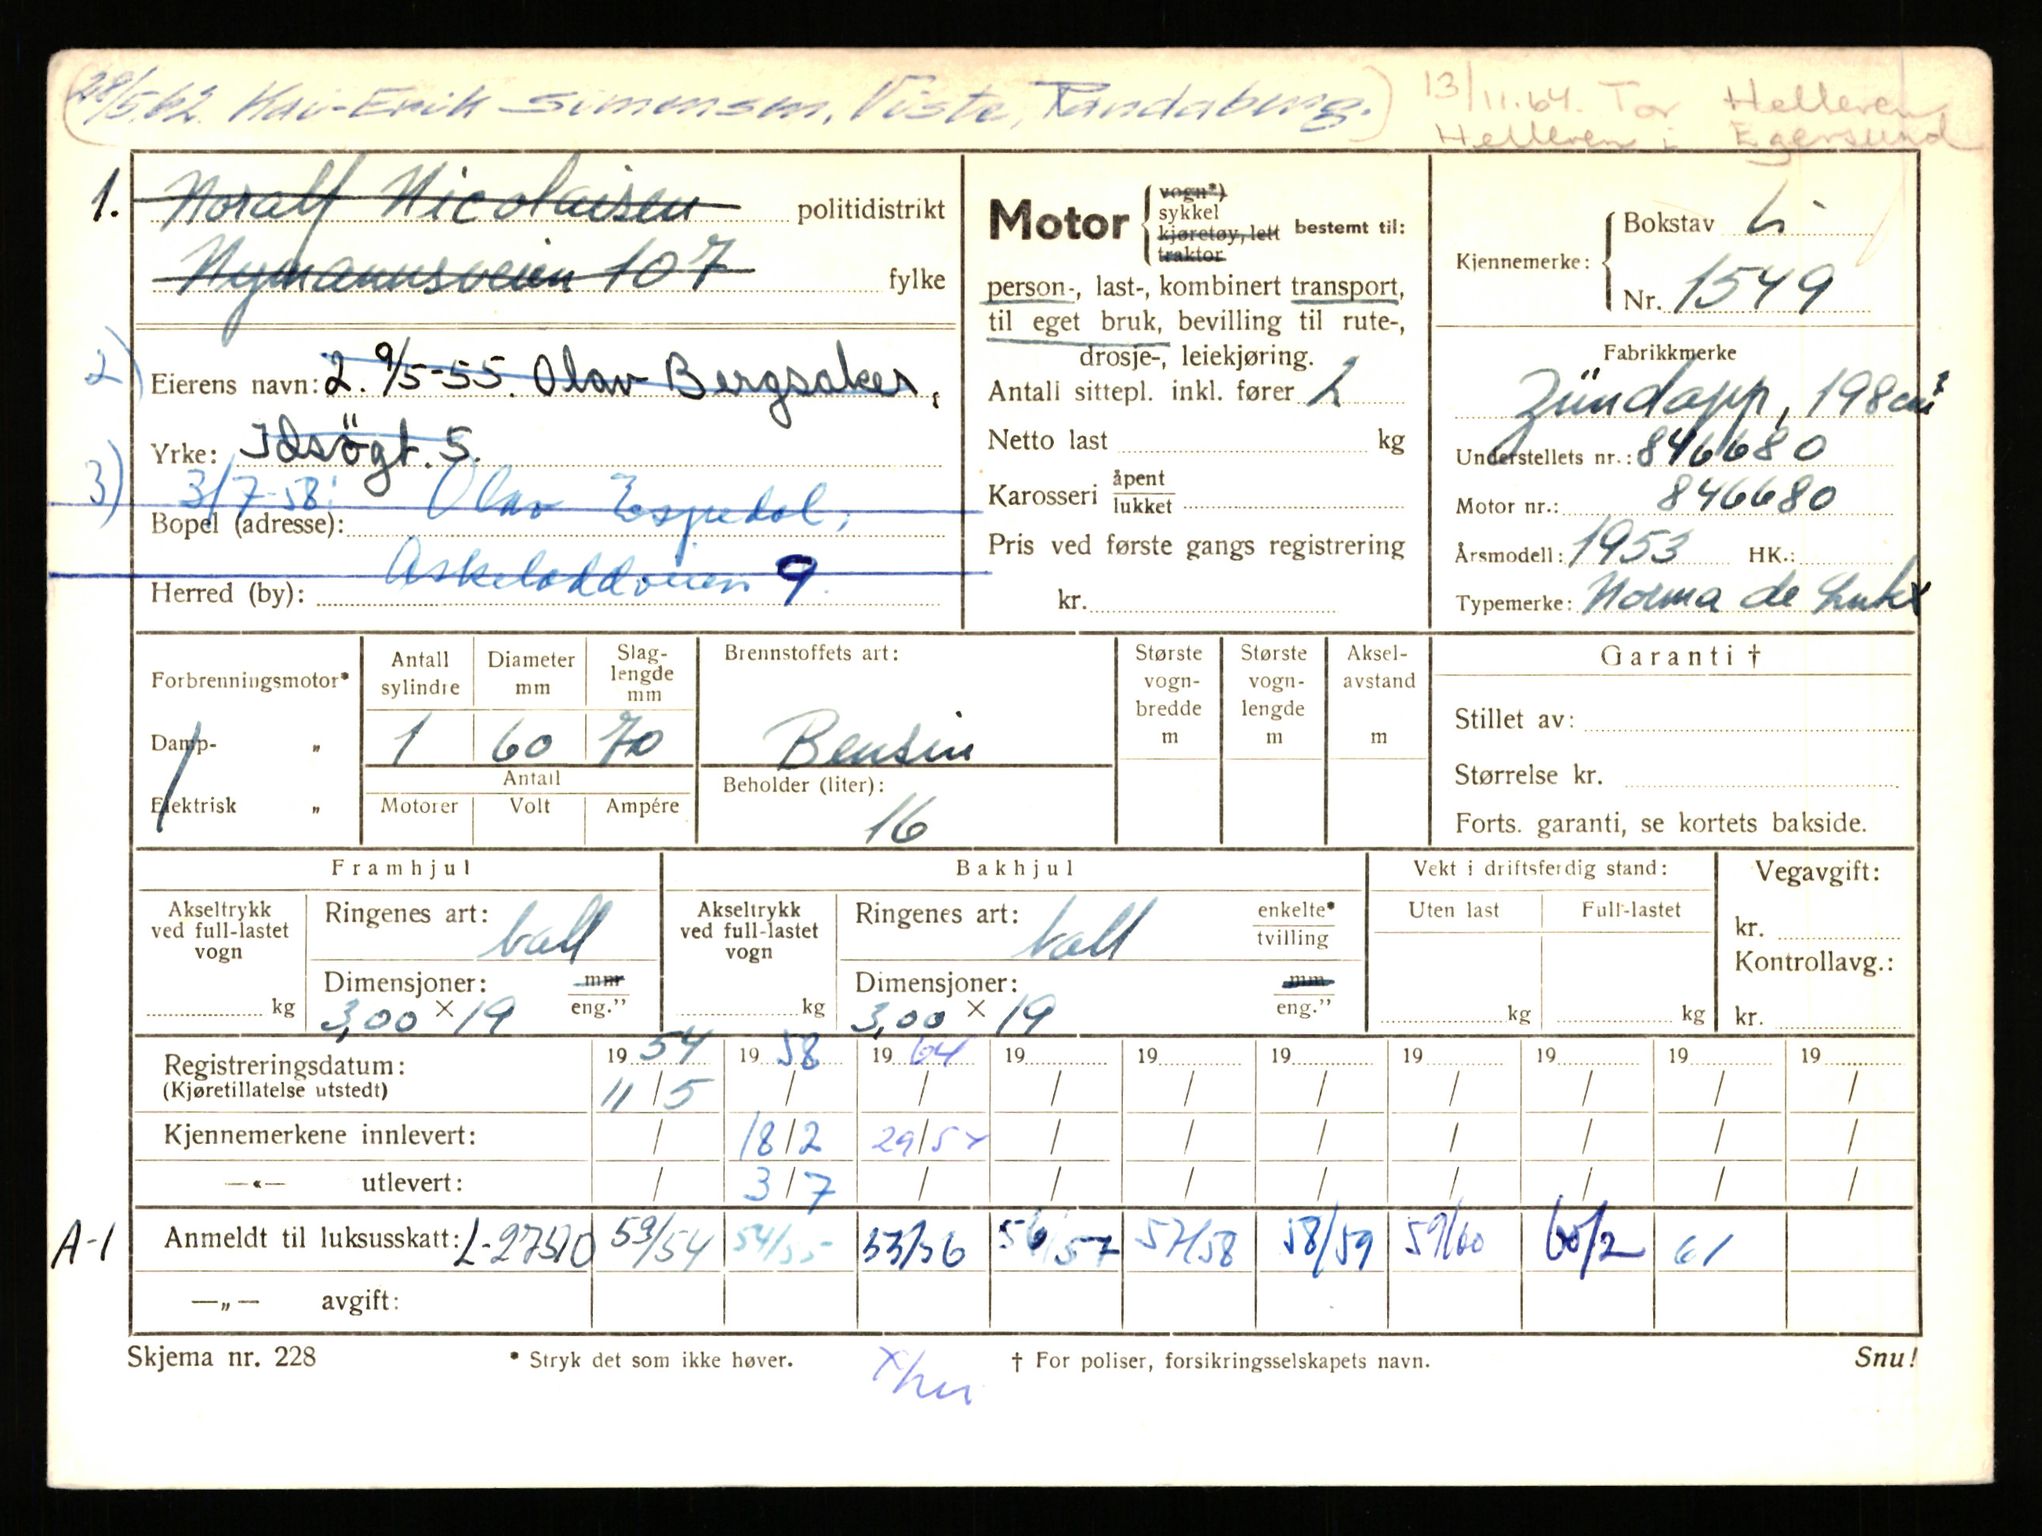 (28/5.62. Kai-Erik Simensen, Viste, Randaberg.)
13/11.64. Tor Helleren
Helleren i Egersund
1. Noralf Nicolaisen politidistrikt
Nymannsveien 107 fylke
2) Eierens navn: 2. 9/5-55. Olav Bergsaker,
Yrke: Idsøgt. 5.
3) 3/7-58: Olav Espedal,
Bopel (adresse):
Askeladdveien 9.
Herred (by):
Motor { vogn*) sykkel kjøretøy, lett traktor bestemt til:
person-, last-, kombinert transport,
til eget bruk, bevilling til rute-,
drosje-, leiekjøring.
Antall sittepl. inkl. fører 2
Netto last kg
Karosseri åpent lukket
Pris ved første gangs registrering
kr.
Kjennemerke: { Bokstav L
Nr. 1549
Fabrikkmerke
Zündapp, 198 cm³
Understellets nr.: 846680
Motor nr.: 846680
Årsmodell: 1953 HK.:
Typemerke: Norma de Luxe
Forbrenningsmotor*
Damp- „
Elektrisk „
Antall sylindre Diameter mm Slag-lengde mm
1 60 70
Antall
Motorer Volt Ampére
Brennstoffets art:
Bensin
Beholder (liter):
16
Største vogn-bredde m
Største vogn-lengde m
Aksel-avstand m
Garanti †
Stillet av:
Størrelse kr.
Forts. garanti, se kortets bakside.
Framhjul
Akseltrykk ved full-lastet vogn kg
Ringenes art: ball
Dimensjoner: mm eng.”
3,00 × 19
Bakhjul
Akseltrykk ved full-lastet vogn kg
Ringenes art: ball enkelte* tvilling
Dimensjoner: mm eng.”
3,00 × 19
Vekt i driftsferdig stand:
Uten last Full-lastet
kg kg
Vegavgift:
kr.
Kontrollavg.:
kr.
Registreringsdatum: 19 54 19 58 19 64 19 19 19 19 19 19 19
(Kjøretillatelse utstedt) 11 / 5 / / / / / / / / /
Kjennemerkene innlevert: / 18 / 2 29 / 5 x / / / / / / /
—«— utlevert: / 3 / 7 / / / / / / / /
A-1 Anmeldt til luksusskatt: L-27510 53/54 54/55 55/56 56/57 57/58 58/59 59/60 60/2 61
—„— avgift:
Skjema nr. 228
* Stryk det som ikke høver.
† For poliser, forsikringsselskapets navn.
Snu!